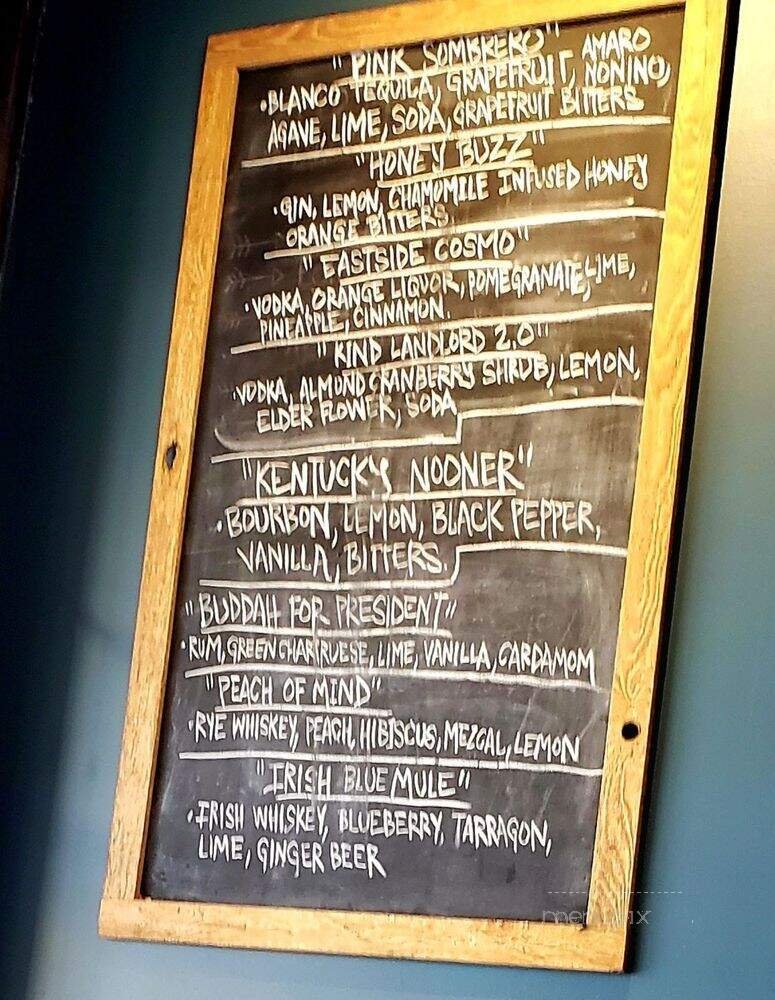 "PINK SOMBRERO"
•BLANCO TEQUILA, GRAPEFRUIT, AMARO NONINO,
AGAVE, LIME, SODA, GRAPEFRUIT BITTERS
"HONEY BUZZ"
•GIN, LEMON, CHAMOMILE INFUSED HONEY
ORANGE BITTERS.
"EASTSIDE COSMO"
•VODKA, ORANGE LIQUOR, POMEGRANATE, LIME,
PINEAPPLE, CINNAMON.
"KIND LANDLORD 2.0"
•VODKA, ALMOND CRANBERRY SHRUB, LEMON,
ELDER FLOWER, SODA
"KENTUCKY NOONER"
•BOURBON, LEMON, BLACK PEPPER,
VANILLA, BITTERS.
"BUDDAH FOR PRESIDENT"
•RUM, GREEN CHARTRUESE, LIME, VANILLA, CARDAMOM
"PEACH OF MIND"
•RYE WHISKEY, PEACH, HIBISCUS, MEZCAL, LEMON
"IRISH BLUE MULE"
•IRISH WHISKEY, BLUEBERRY, TARRAGON,
LIME, GINGER BEER